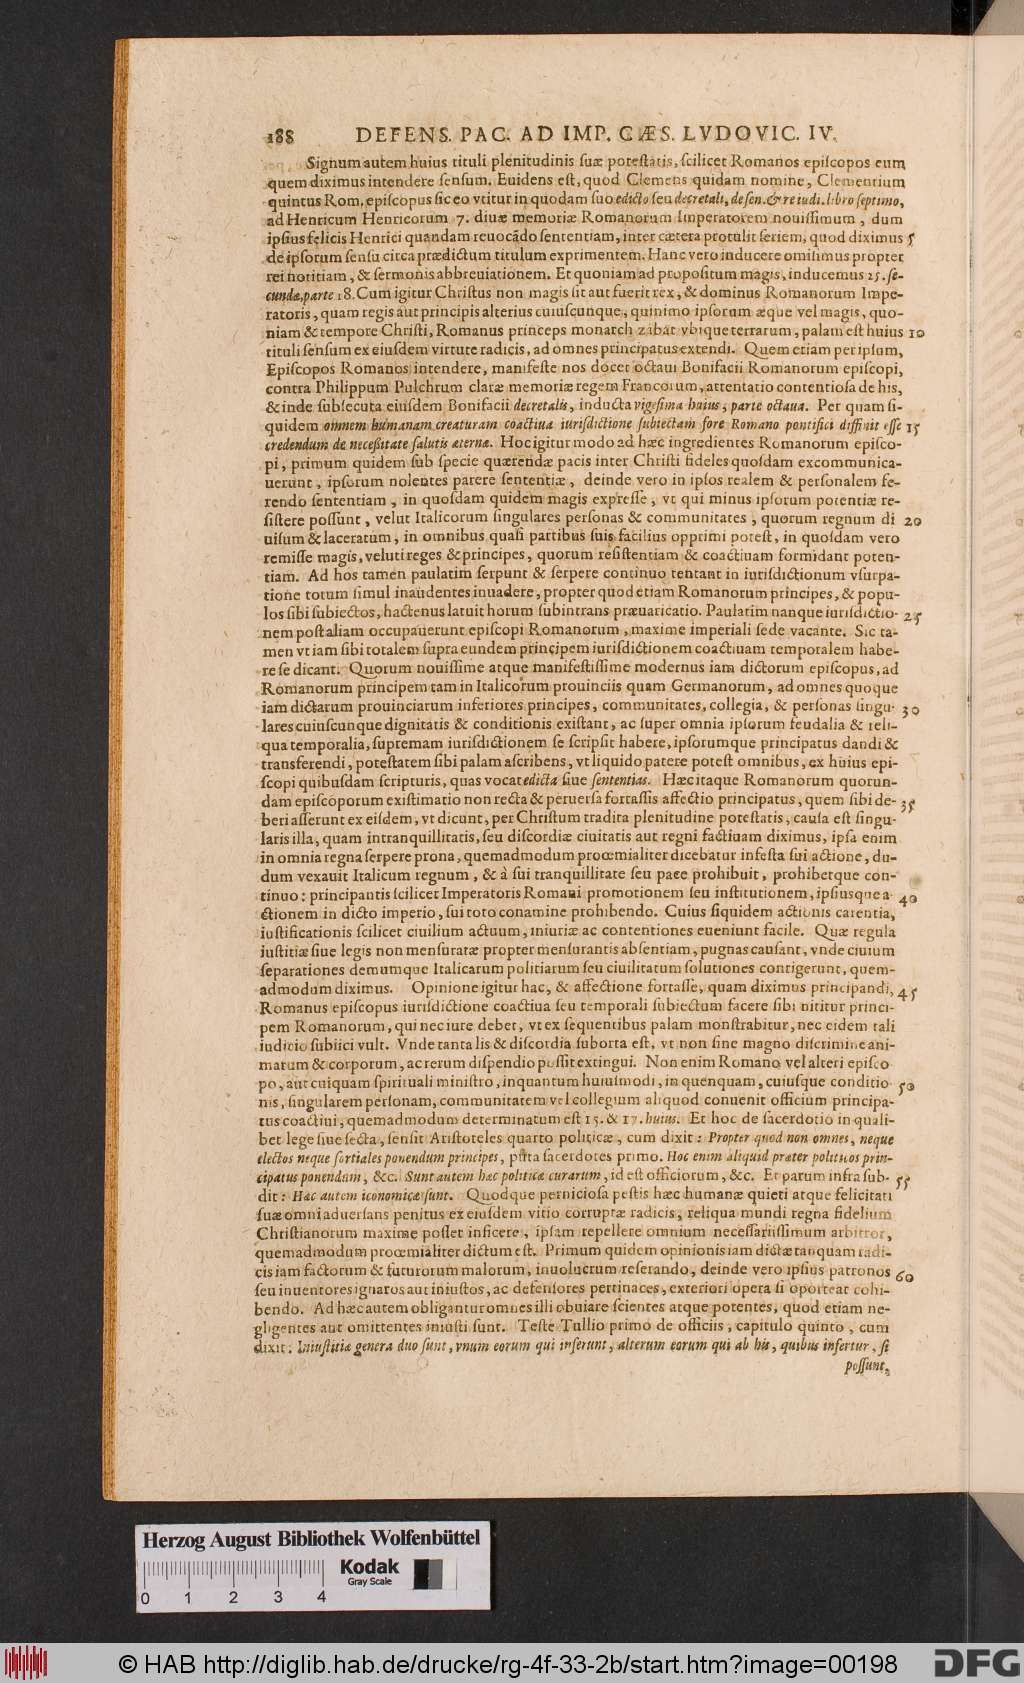 188 DEFENS. PAC. AD IMP. CÆS. LVDOVIC. IV.
Signum autem huius tituli plenitudinis ſuæ poteſtatis, ſcilicet Romanos epiſcopos eum
quem diximus intendere ſenſum. Euidens eſt, quod Clemens quidam nomine, Clementium
quintus Rom, epiſcopus ſic eo vtitur in quodam ſuo edicto ſeu decretali, de ſen. & re iudi. libro ſeptimo,
ad Henricum Henricorum 7. diuæ memoriæ Romanorum Imperatorem nouiſſimum, dum
ipſius felicis Henrici quandam reuocãdo ſententiam, inter cætera protulit ſeriem, quod diximus 5
de ipſorum ſenſu circa prædictum titulum exprimentem. Hanc vero inducere omiſimus propter
rei notitiam, & ſermonis abbreuiationem. Et quoniam ad propoſitum magis, inducemus 25. ſe-
cundæ, parte 18. Cum igitur Chriſtus non magis ſit aut fuerit rex, & dominus Romanorum Impe-
ratoris, quam regis aut principis alterius cuiuſcunque, quinimo ipſorum æque vel magis, quo-
niam & tempore Chriſti, Romanus princeps monarchizabat vbique terrarum, palam eſt huius 10
tituli ſenſum ex eiuſdem virtute radicis, ad omnes principatus extendi. Quem etiam per ipſum,
Epiſcopos Romanos intendere, manifeſte nos docet octaui Bonifacii Romanorum epiſcopi,
contra Philippum Pulchrum claræ memoriæ regem Francorum, attentatio contentioſa de his,
& inde ſubſecuta eiuſdem Bonifacii decretalis, inducta vigeſima huius, parte octaua. Per quam ſi-
quidem omnem humanam creaturam coactiua iuriſdictione ſubiectam fore Romano pontifici diffinit eſſe 15
credendum de neceßitate ſalutis æternæ. Hoc igitur modo ad hæc ingredientes Romanorum epiſco-
pi, primum quidem ſub ſpecie quærendæ pacis inter Chriſti fideles quoſdam excommunica-
uerunt, ipſorum nolentes parere ſententiæ, deinde vero in ipſos realem & perſonalem fe-
rendo ſententiam, in quoſdam quidem magis expreſſe, vt qui minus ipſorum potentiæ re-
ſiſtere poſſunt, velut Italicorum ſingulares perſonas & communitates, quorum regnum di 20
uiſum & laceratum, in omnibus quaſi partibus ſuis facilius opprimi poteſt, in quoſdam vero
remiſſe magis, veluti reges & principes, quorum reſiſtentiam & coactiuam formidant poten-
tiam. Ad hos tamen paulatim ſerpunt & ſerpere continuo tentant in iuriſdictionum vſurpa-
tione totum ſimul inaudentes inuadere, propter quod etiam Romanorum principes, & popu-
los ſibi ſubiectos, hactenus latuit horum ſubintrans præuaricatio. Paulatim nanque iuriſdictio- 25
nem poſt aliam occupauerunt epiſcopi Romanorum, maxime imperiali ſede vacante. Sic ta-
men vt iam ſibi totalem ſupra eundem principem iuriſdictionem coactiuam temporalem habe-
re ſe dicant. Quorum nouiſſime atque manifeſtiſſime modernus iam dictorum epiſcopus, ad
Romanorum principem tam in Italicorum prouinciis quam Germanorum, ad omnes quoque
iam dictarum prouinciarum inferiores principes, communitates, collegia, & perſonas ſingu- 30
lares cuiuſcunque dignitatis & conditionis exiſtant, ac ſuper omnia ipſorum feudalia & reli-
qua temporalia, ſupremam iuriſdictionem ſe ſcripſit habere, ipſorumque principatus dandi &
transferendi, poteſtatem ſibi palam aſcribens, vt liquido patere poteſt omnibus, ex huius epi-
ſcopi quibuſdam ſcripturis, quas vocat edicta ſiue ſententias. Hæc itaque Romanorum quorun-
dam epiſcoporum exiſtimatio non recta & peruerſa fortaſſis affectio principatus, quem ſibi de- 35
beri aſſerunt ex eiſdem, vt dicunt, per Chriſtum tradita plenitudine poteſtatis, cauſa eſt ſingu-
laris illa, quam intranquillitatis, ſeu diſcordiæ ciuitatis aut regni factiuam diximus, ipſa enim
in omnia regna ſerpere prona, quemadmodum prœmialiter dicebatur infeſta ſui actione, du-
dum vexauit Italicum regnum, & à ſui tranquillitate ſeu pace prohibuit, prohibetque con-
tinuo: principantis ſcilicet Imperatoris Romani promotionem ſeu inſtitutionem, ipſiusque a- 40
ctionem in dicto imperio, ſui toto conamine prohibendo. Cuius ſiquidem actionis carentia,
iuſtificationis ſcilicet ciuilium actuum, iniuriæ ac contentiones eueniunt facile. Quæ regula
iuſtitiæ ſiue legis non menſuratæ propter menſurantis abſentiam, pugnas cauſant, vnde ciuium
ſeparationes demumque Italicarum politiarum ſeu ciuilitatum ſolutiones contigerunt, quem-
admodum diximus. Opinione igitur hac, & affectione fortaſſe, quam diximus principandi, 45
Romanus epiſcopus iuriſdictione coactiua ſeu temporali ſubiectum facere ſibi nititur princi-
pem Romanorum, qui nec iure debet, vt ex ſequentibus palam monſtrabitur, nec eidem tali
iudicio ſubiici vult. Vnde tanta lis & diſcordia ſuborta eſt, vt non ſine magno diſcrimine ani-
marum & corporum, ac rerum diſpendio poſſit extingui. Non enim Romano vel alteri epiſco-
po, aut cuiquam ſpirituali miniſtro, inquantum huiuſmodi, in quenquam, cuiuſque conditio- 50
nis, ſingularem perſonam, communitatem vel collegium aliquod conuenit officium principa-
tus coactiui, quemadmodum determinatum eſt 15. & 17. huius. Et hoc de ſacerdotio in quali-
bet lege ſiue ſecta, ſenſit Ariſtoteles quarto politicæ, cum dixit: Propter quod non omnes, neque
electos neque ſortiales ponendum principes, puta ſacerdotes primo. Hoc enim aliquid præter politicos prin-
cipatus ponendum, &c. Sunt autem hac politicæ curarum, id eſt officiorum, &c. Et parum infra ſub- 55
dit: Hac autem iconomicæ ſunt. Quodque pernicioſa peſtis hæc humanæ quieti atque felicitati
ſuæ omni aduerſans penitus ex eiuſdem vitio corruptæ radicis, reliqua mundi regna fidelium
Chriſtianorum maxime poſſet inficere, ipſam repellere omnium neceſſariiſſimum arbitror,
quemadmodum prœmialiter dictum eſt. Primum quidem opinionis iam dictæ tanquam radi-
cis iam factorum & futurorum malorum, inuolucrum reſerando, deinde vero ipſius patronos 60
ſeu inuentores ignaros aut iniuſtos, ac defenſores pertinaces, exteriori opera ſi oporteat cohi-
bendo. Ad hæc autem obligantur omnes illi obuiare ſcientes atque potentes, quod etiam ne-
gligentes aut omittentes iniuſti ſunt. Teſte Tullio primo de officiis, capitulo quinto, cum
dixit: Iniuſtitiæ genera duo ſunt, vnum eorum qui inferunt, alterum eorum qui ab his, quibus infertur, ſi
poſſunt,
Herzog August Bibliothek Wolfenbüttel
Kodak
Gray Scale
0 1 2 3 4
© HAB http://diglib.hab.de/drucke/rg-4f-33-2b/start.htm?image=00198
DFG